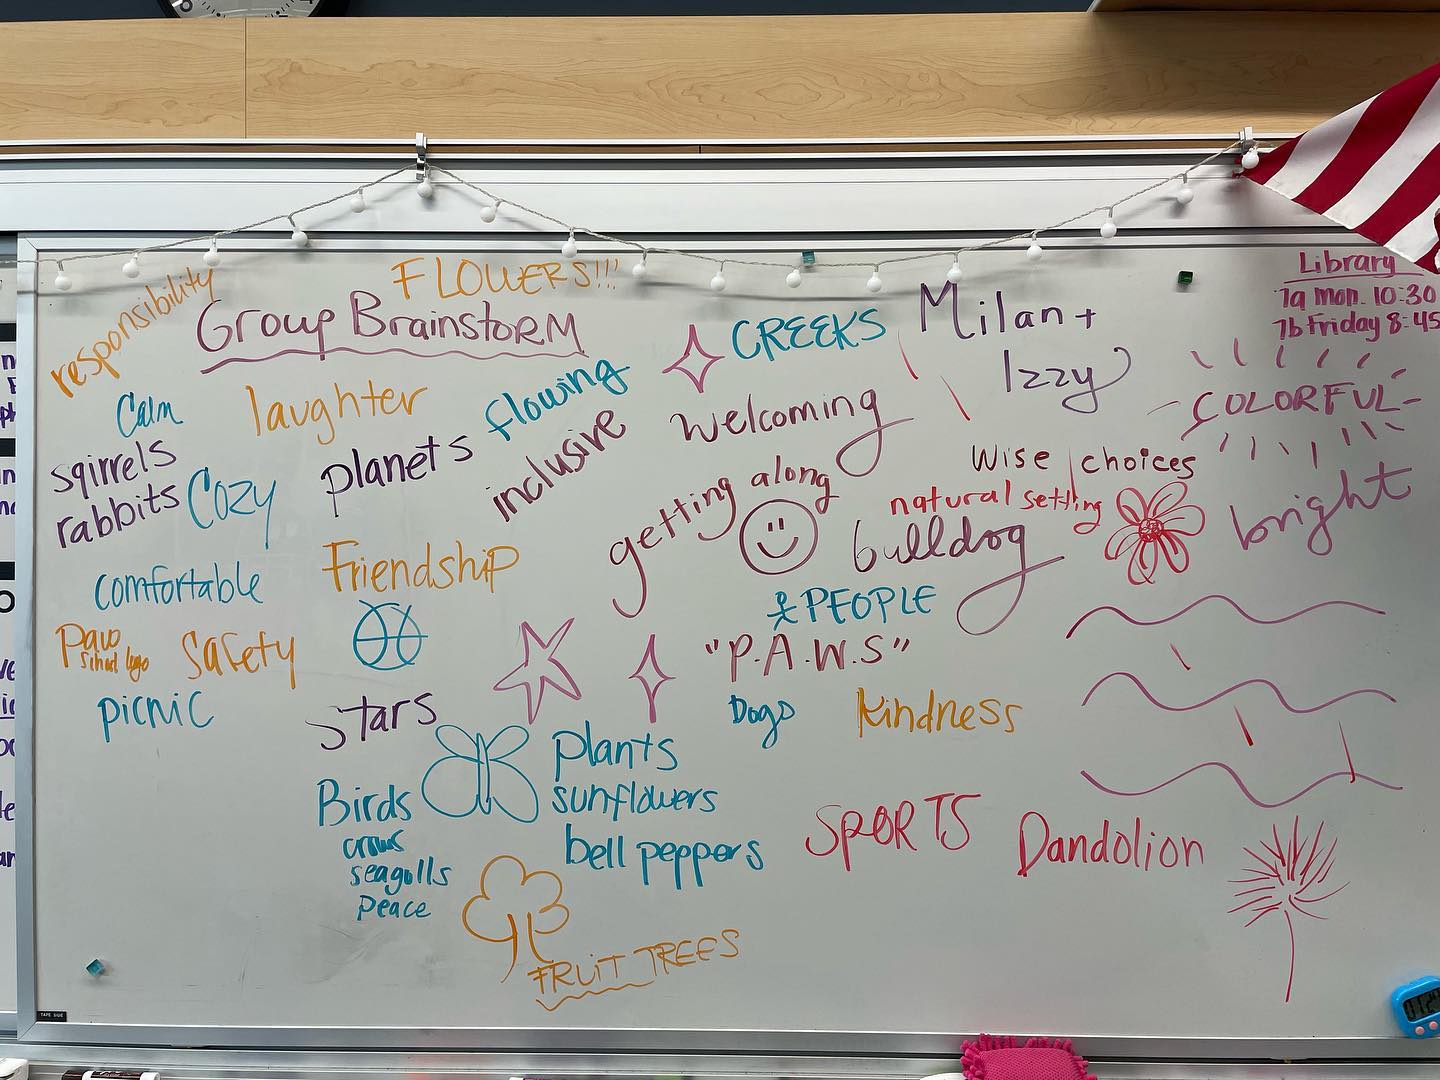 responsibility
FLOWERS!!!
Group Brainstorm
CREEKS
Milan +
Izzy
Library
7a Mon. 10:30
7b Friday 8:45
Calm
laughter
flowing
welcoming
COLORFUL
sqirrels
rabbits
Cozy
planets
inclusive
getting along
wise choices
natural setting
bulldog
bright
comfortable
Friendship
PEOPLE
Paw
School logo
safety
"P.A.W.S"
picnic
stars
Dogs
kindness
plants
sunflowers
bell peppers
Birds
crows
seagulls
peace
SPORTS
Dandolion
FRUIT TREES
TAPE SIDE